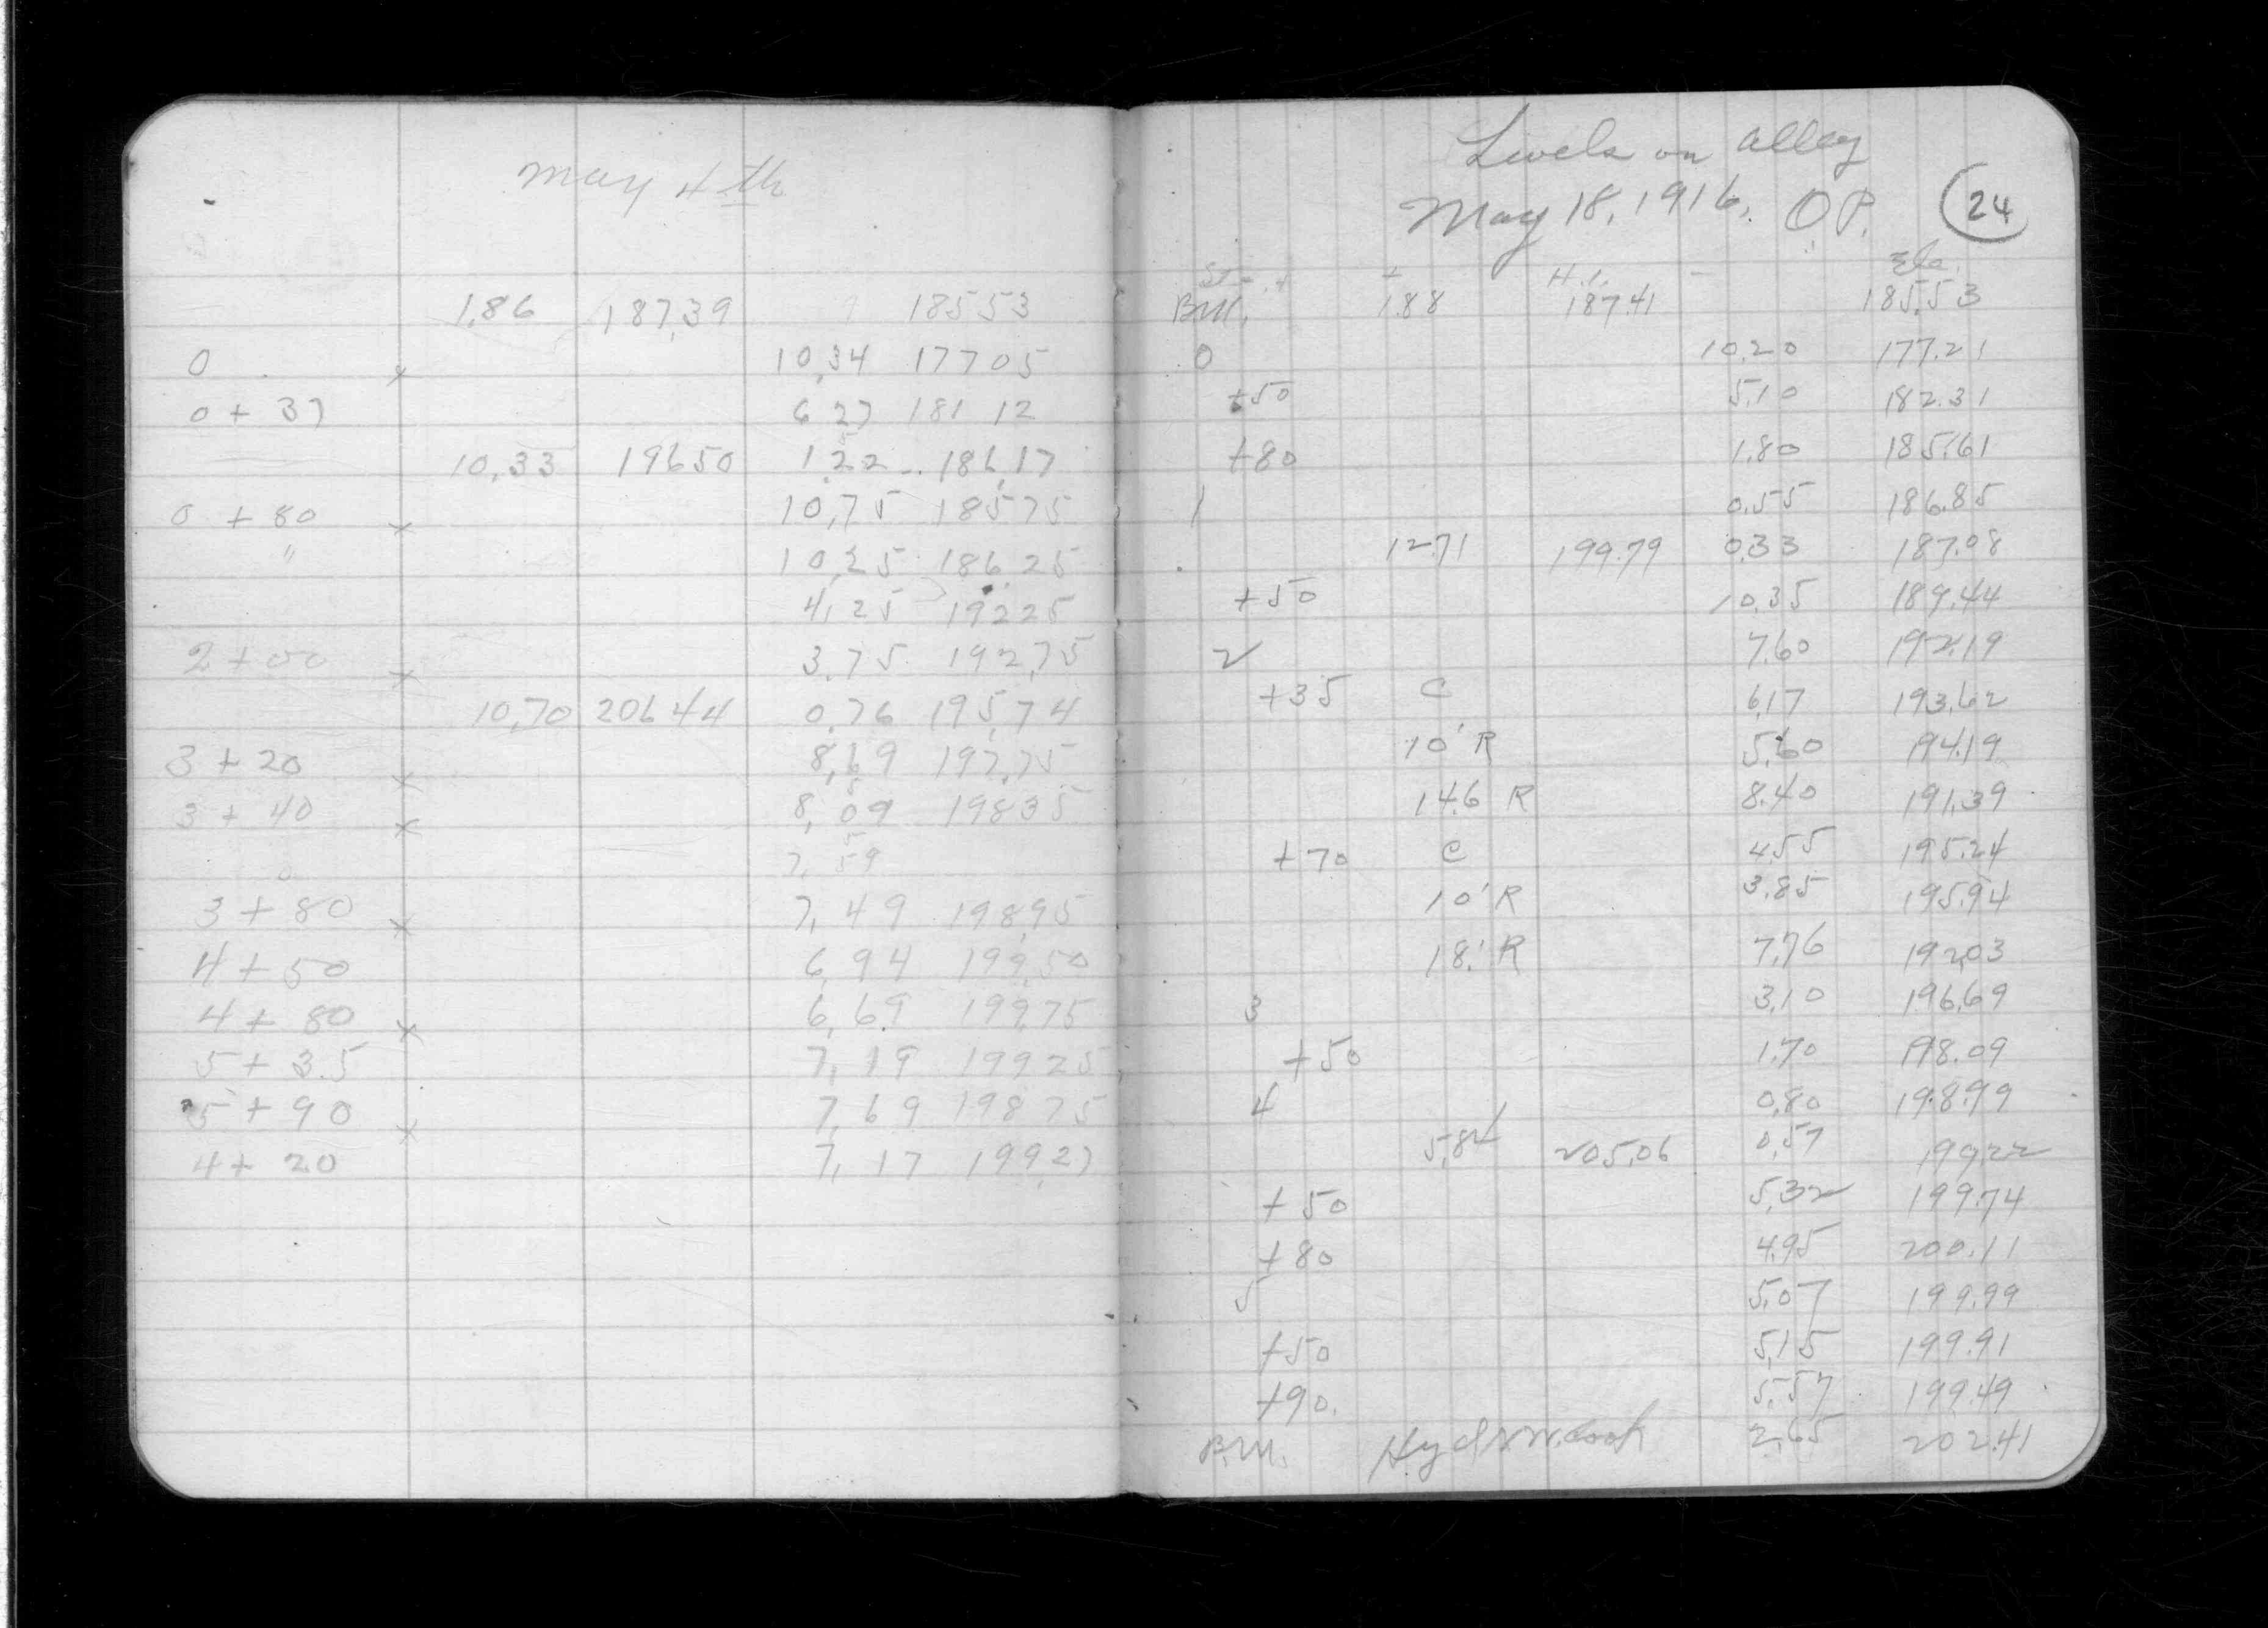 May 4th
1,86 187,39 18553
0 x 10,34 17705
0 + 37 6 27 181 12
10,33 19650 1,22 186,17
0 + 80 x 10,75 18575
" 10,25 186,25
4,25 19225
2 + 00 x 3.75 192,75
10,70 20644 0,76 195,74
3 + 20 x 8,69 197,75
3 + 40 x 8,09 19835
7,59
3 + 80 x 7,49 198,95
4 + 50 6,94 199,50
4 + 80 x 6,69 199,75
5 + 35 7,19 19925
5 + 90 x 7,69 19875
4 + 20 7,17 199,27
Levels on alley
May 18, 1916. O.P. 24
Sta. + H.I. - Ele.
B.M. 1.88 187.41 185.53
0 10.20 177.21
+50 5.10 182.31
+80 1.80 185.61
1 0.55 186.85
12.71 199.79 0.33 187.08
+50 10.35 189.44
2 7.60 192.19
+35 C 6.17 193.62
10' R 5.60 194.19
14.6 R 8.40 191.39
+70 C 4.55 195.24
10' R 3.85 195.94
18.' R 7.76 192.03
3 3.10 196.69
+50 1.70 198.09
4 0.80 198.99
5.84 205.06 0.57 199.22
+50 5.32 199.74
+80 4.95 200.11
5 5.07 199.99
+50 5.15 199.91
+90. 5.57 199.49
B.M. 2.65 202.41